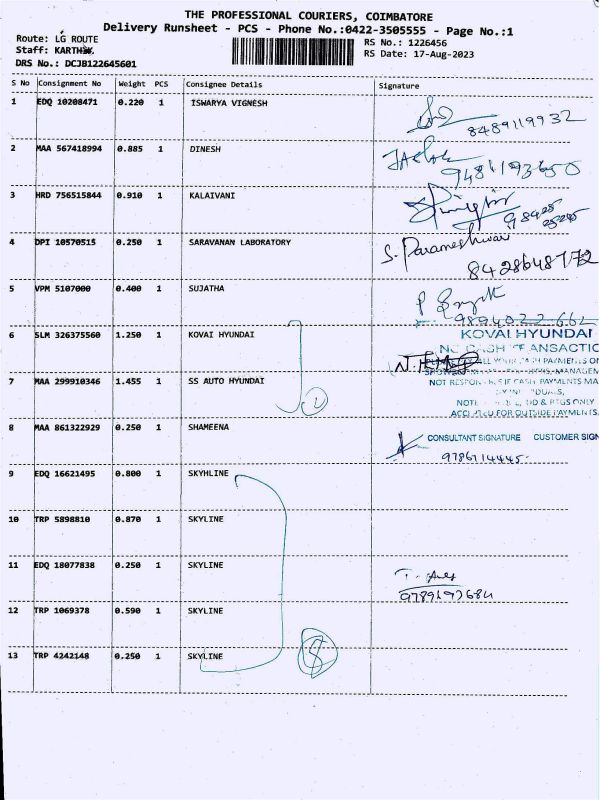 THE PROFESSIONAL COURIERS, COIMBATORE
Delivery Runsheet - PCS - Phone No.:0422-3505555 - Page No.:1
Route: LG ROUTE
RS No.: 1226456
Staff: KARTHIK.
RS Date: 17-Aug-2023
DRS No.: DCJB122645601
S No Consignment No Weight PCS Consignee Details Signature
1 EDQ 10208471 0.220 1 ISWARYA VIGNESH
8489119932
2 MAA 567418994 0.885 1 DINESH
9481193650
3 HRD 756515844 0.910 1 KALAIVANI
4 DPI 10570515 0.250 1 SARAVANAN LABORATORY
S. Parameshwari
8428648772
5 VPM 5107000 0.400 1 SUJATHA
9894022662
6 SLM 326375560 1.250 1 KOVAI HYUNDAI
KOVAI HYUNDAI
7 MAA 299910346 1.455 1 SS AUTO HYUNDAI
2
ACCEPTED FOR OUTSIDE PAYMENTS
8 MAA 861322929 0.250 1 SHAMEENA
CONSULTANT SIGNATURE CUSTOMER SIGN
9786714445.
9 EDQ 16621495 0.800 1 SKYHLINE
10 TRP 5898810 0.870 1 SKYLINE
11 EDQ 18077838 0.250 1 SKYLINE
12 TRP 1069378 0.590 1 SKYLINE
13 TRP 4242148 0.250 1 SKYLINE